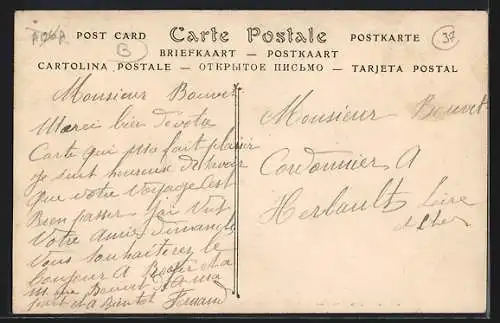 POST CARD Carte Postale POSTKARTE
BRIEFKAART — POSTKAART
CARTOLINA POSTALE — ОТКРЫТОЕ ПИСЬМО — TARJETA POSTAL
B
37
Monsieur Bouvet
Merci bien de votre
Carte qui m'a fait plaisir
je suit heureuse de savoir
que votre Voyage C'est
Bien passer J'ai Vut
Votre Amie Dimanche
Vous Souhaiterez le
bonjour A Roger et a
Mme Bouvet de ma
part et a Bientot Fernand
Monsieur Bouvet
Cordonnier A
Herbault Loire
et Cher